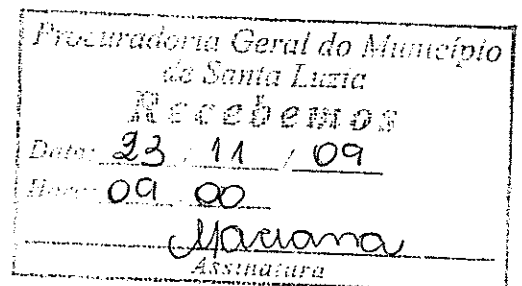 Procuradoria Geral do Município
de Santa Luzia
Recebemos
Data: 23 / 11 / 09
Hora: 09 00
Mariana
Assinatura